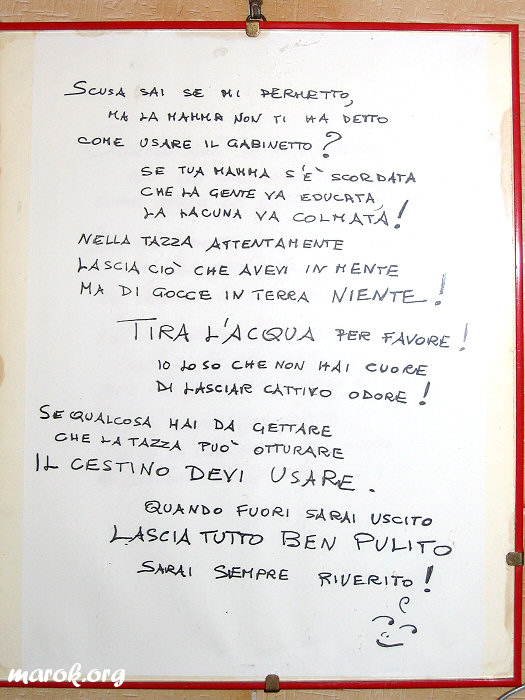 SCUSA SAI SE MI PERMETTO,
MA LA MAMMA NON TI HA DETTO
COME USARE IL GABINETTO?
SE TUA MAMMA S'È SCORDATA
CHE LA GENTE VA EDUCATA,
LA LACUNA VA COLMATA!
NELLA TAZZA ATTENTAMENTE
LASCIA CIÒ CHE AVEVI IN MENTE
MA DI GOCCE IN TERRA NIENTE!
TIRA L'ACQUA PER FAVORE!
IO LO SO CHE NON HAI CUORE
DI LASCIAR CATTIVO ODORE!
SE QUALCOSA HAI DA GETTARE
CHE LA TAZZA PUÒ OTTURARE
IL CESTINO DEVI USARE.
QUANDO FUORI SARAI USCITO
LASCIA TUTTO BEN PULITO
SARAI SEMPRE RIVERITO!
marok.org